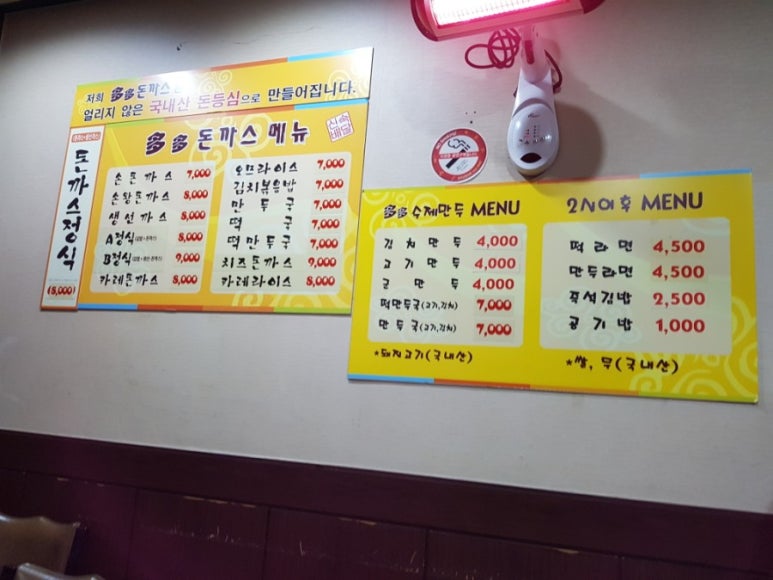 저희 多多 돈까스는
얼리지 않은 국내산 돈등심으로 만들어집니다.
돈까스정식
(8,000)
多多 돈까스 메뉴
신속배달
손돈까스 7,000
손왕돈까스 8,000
생선까스 8,000
A정식 8,000
B정식 9,000
카레돈까스 8,000
오므라이스 7,000
김치볶음밥 7,000
만두국 7,000
떡국 7,000
떡만두국 7,000
치즈돈까스 9,000
카레라이스 8,000
多多 수제만두 MENU
김치만두 4,000
고기만두 4,000
군만두 4,000
떡만두국(고기,김치) 7,000
만두국(고기,김치) 7,000
*돼지고기(국내산)
2시이후 MENU
떡라면 4,500
만두라면 4,500
즉석김밥 2,500
공기밥 1,000
*쌀, 무(국내산)